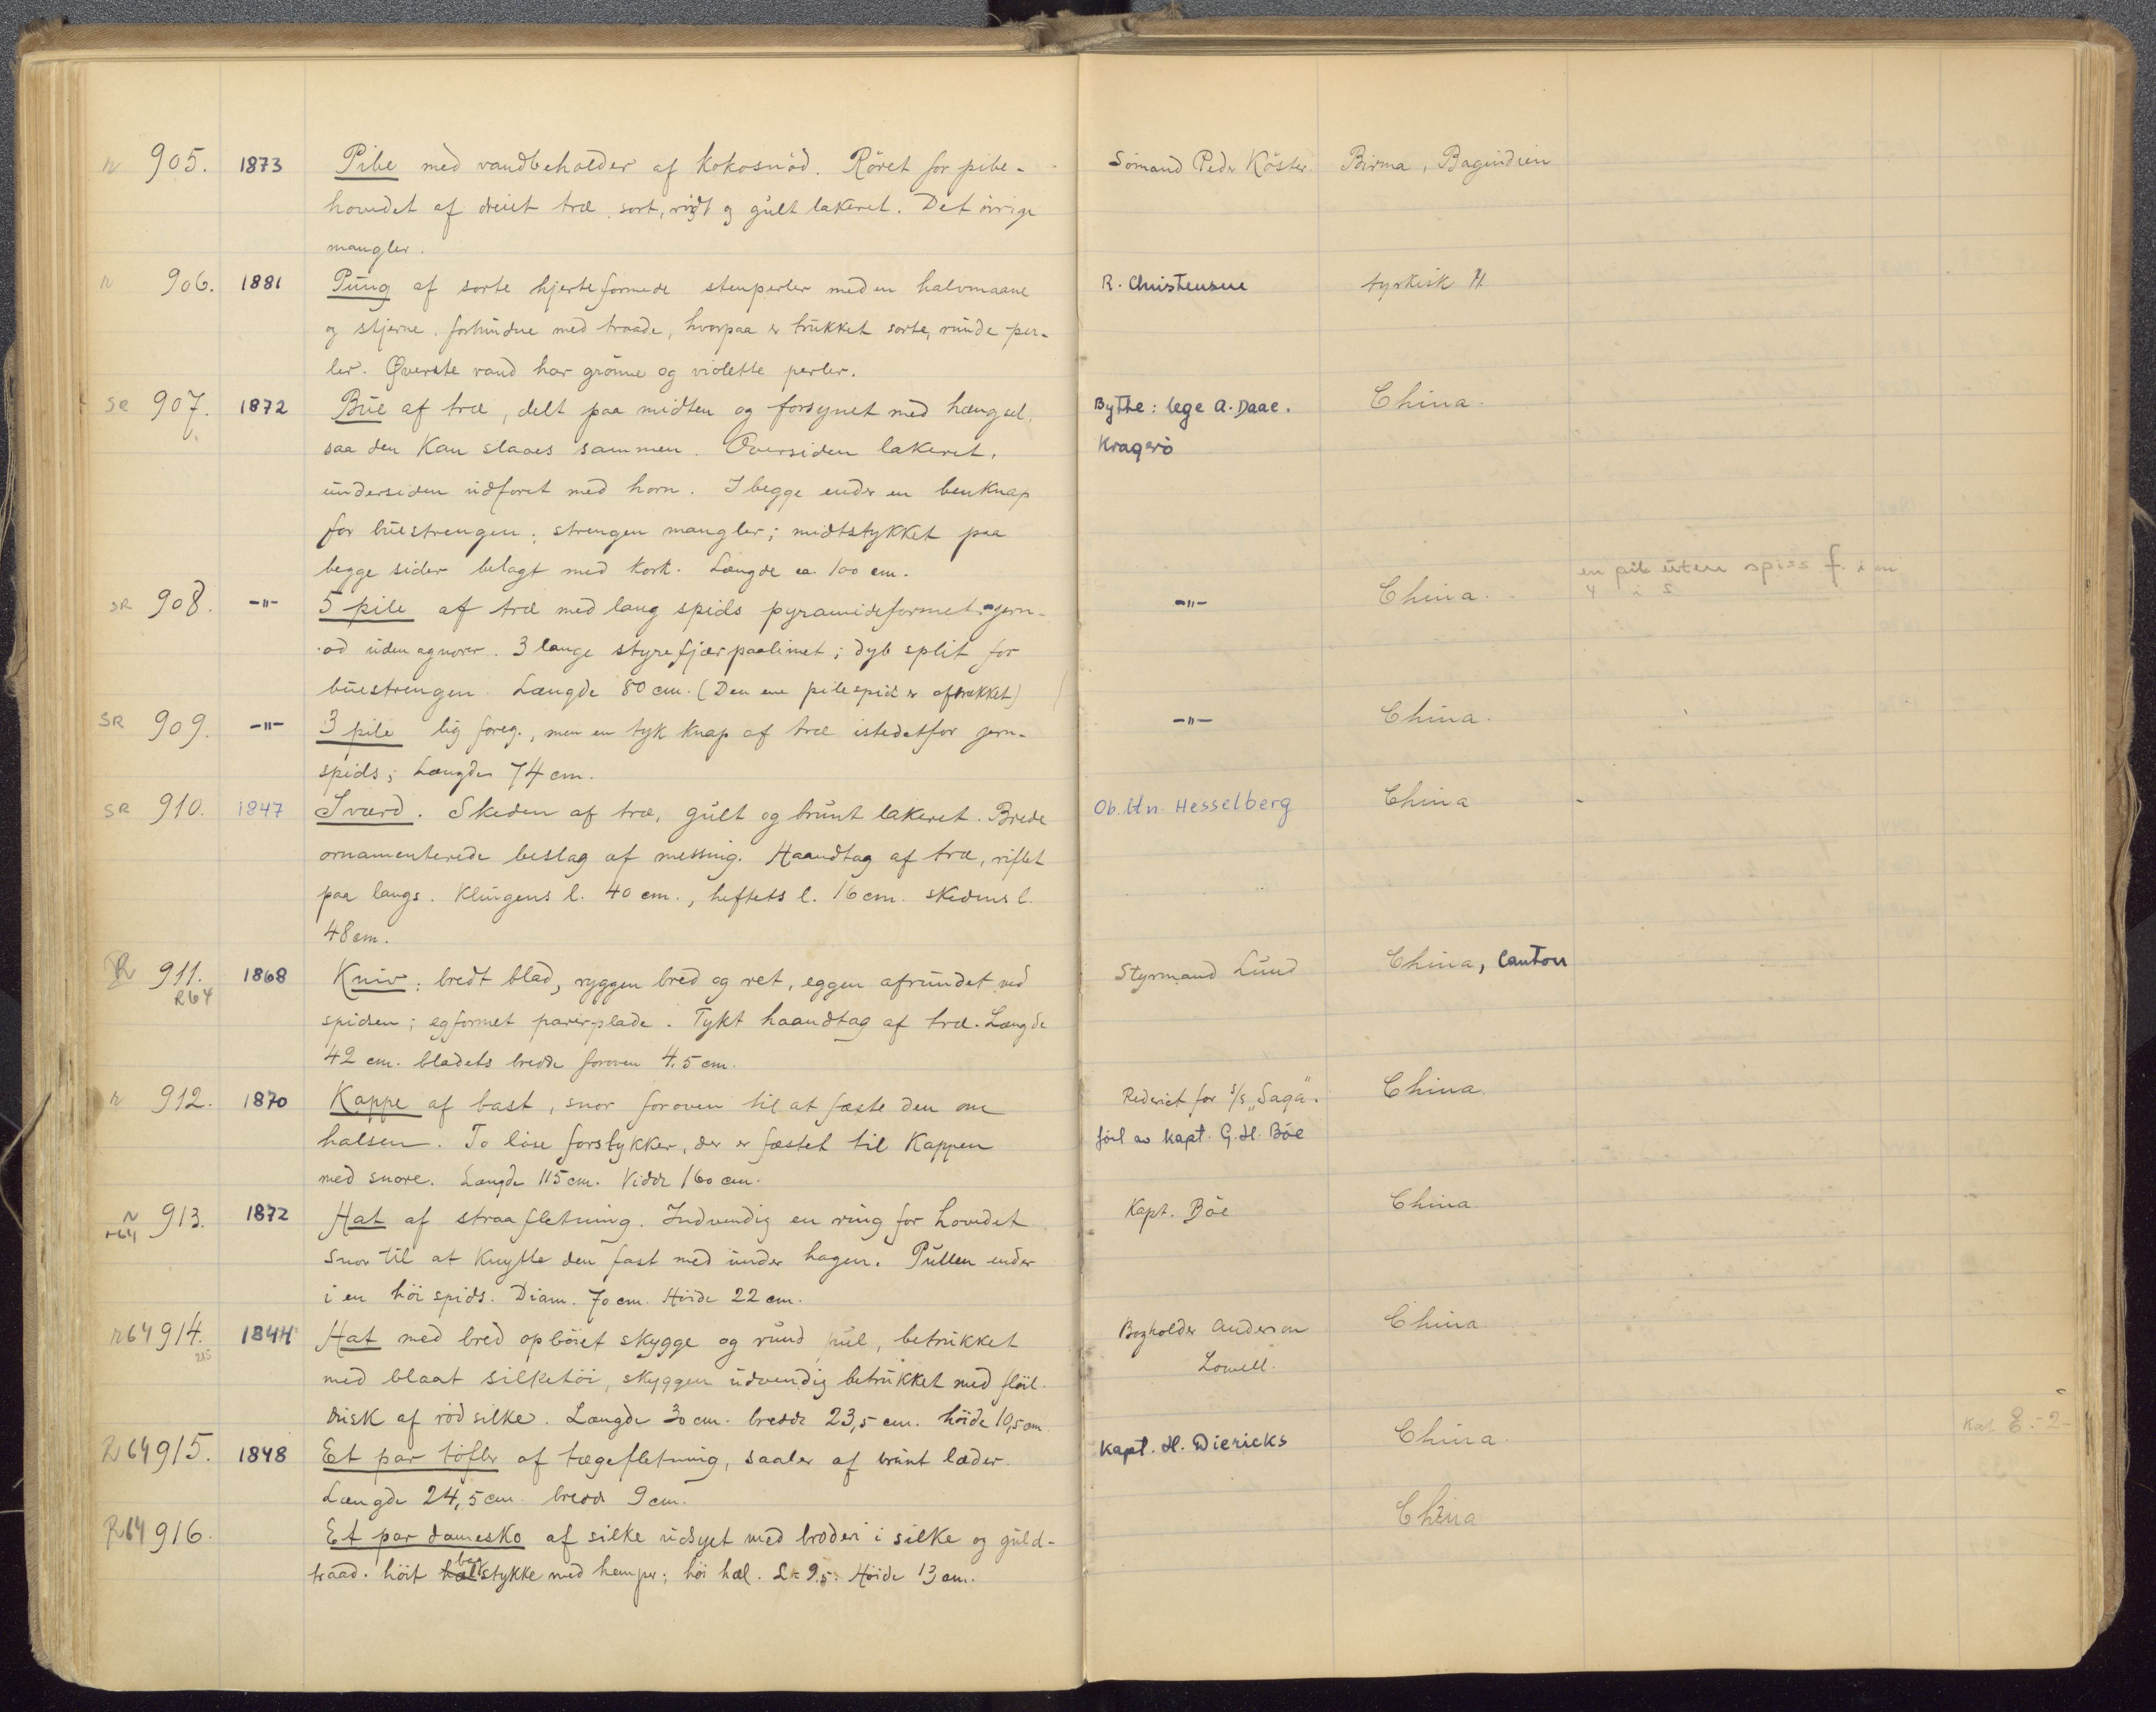 r 905. 1873 Pibe med vandbeholder af kokosnöd. Röret for pibe- Sömand Peder Köster Birma, Bagindien
hovedet af dreiet træ, sort, rödt og gult lakeret. Det övrige
mangler.
r 906. 1881 Pung af sorte hjerteformede stenperler med en halvmaane R. Christensen tyrkisk
og stjerne, forbundne med traade, hvorpaa er trukket sorte, runde per-
ler. Øverste rand har grönne og violette perler.
SR 907. 1872 Bue af træ, delt paa midten og forsynet med hængsel, Bytte: lege A. Daae. China.
saa den kan slaaes sammen. Oversiden lakeret, Kragerö
undersiden udforet med horn. I begge ender en benknap
for buestrengen; strengen mangler; midtstykket paa
begge sider belagt med kork. Længde ca. 100 cm.
en pil uten spiss f. i m
SR 908. -"- 5 pile af træ med lang spids pyramideformet jern- -"- China. 4 i S
od uden agnorer. 3 lange styrefjær paalimet; dyb split for
buestrengen. Længde 80 cm. (Den ene pilespids er afbrækket)
SR 909. -"- 3 pile lig foreg., men en tyk knap af træ istedetfor jern- -"- China.
spids; Længde 74 cm.
SR 910. 1847 Sværd. Skeden af træ, gult og brunt lakeret. Brede Ob. ltn. Hesselberg China
ornamenterede beslag af messing. Haandtag af træ, riflet
paa langs. Klingens l. 40 cm., heftets l. 16 cm. skedens l.
48 cm.
R 911. 1868 Kniv; bredt blad, ryggen bred og ret, eggen afrundet ved Styrmand Lund China, Canton
R64 spidsen; egformet parerplade. Tykt haandtag af træ. Længde
42 cm. bladets bredde foroven 4.5 cm.
r 912. 1870 Kappe af bast, snor foroven til at fæste den om Rederiet for S/S "Saga". China.
halsen. To löse forstykker, der er fæstet til Kappen förl av kapt. G. H. Böe
med snore. Længde 115 cm. Vidde 160 cm.
r 913. 1872 Hat af straafletning. Indvendig en ring for hovedet Kapt. Böe China.
r64 Snor til at knytte den fast med under hagen. Pullen ender
i en höi spids. Diam. 70 cm. Höide 22 cm.
r64 914. 1844 Hat med bred opböiet skygge og rund pul, betrukket Bogholder Anderson China
med blaat silketöi, skyggen udvendig betrukket med flöil. Lowell.
Dusk af röd silke. Længde 30 cm. bredde 23,5 cm. höide 10,5 cm.
R64 915. 1848 Et par töfler af tægefletning, saaler af brunt læder. Kapt. H. Diericks China. Kat. 8.-2-
Længde 24,5 cm. bredde 9 cm.
R64 916. Et par damesko af silke udsyet med broderi i silke og guld- China
traad. höit bagstykke med hemper; höi hæl. L= 9.5. Höide 13 cm.